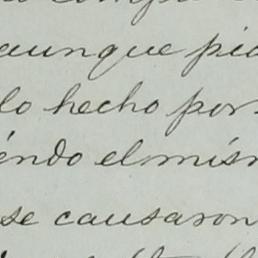 aunque pid
lo hecho por
iéndo el mism
se causaron